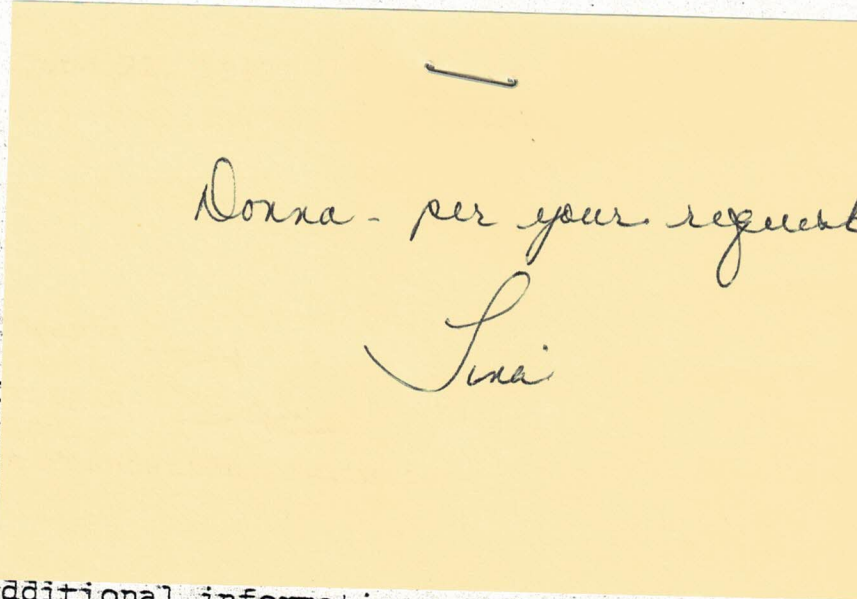 Donna - per your request
Tina
dditional informati